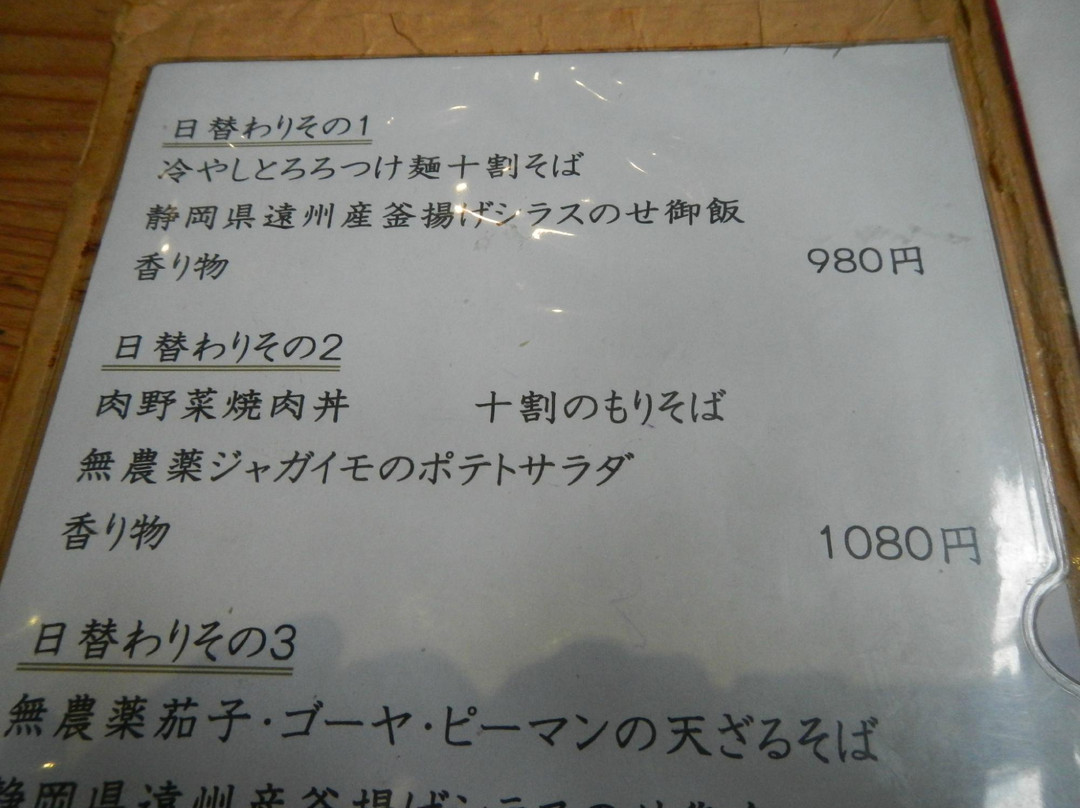 日替わりその1
冷やしとろろつけ麺十割そば
静岡県遠州産釜揚げシラスのせ御飯
香り物 980円
日替わりその2
肉野菜焼肉丼 十割のもりそば
無農薬ジャガイモのポテトサラダ
香り物 1080円
日替わりその3
無農薬茄子・ゴーヤ・ピーマンの天ざるそば
静岡県遠州産釜揚げシラスのせ